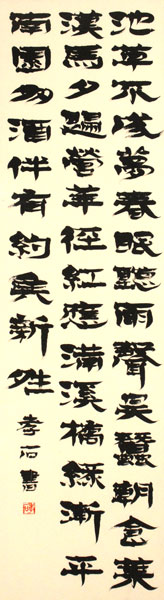 池草不成夢春眠聽雨聲吳蠶朝食葉
漢馬夕營華徑紅應滿溪橋綠漸平
南園多酒伴有約新夝
孝石書